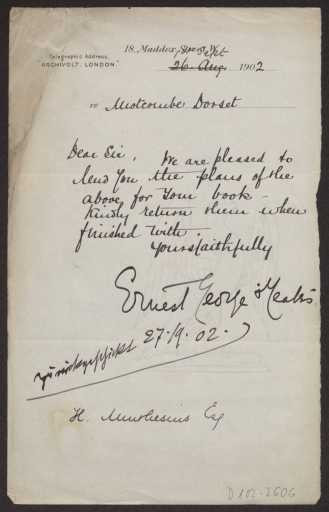 18, Maddox Street, W.
Telegraphic Address,
"ARCHIVOLT, LONDON."
26 Aug 1902
re Motcombe Dorset
Dear Sir, We are pleased to
lend you the plans of the
above, for your book –
Kindly return them when
finished with.
Yours faithfully
Ernest George & Yeates
zurückgeschickt 27.9.02.
H. Muthesius Esq
D 102-2606